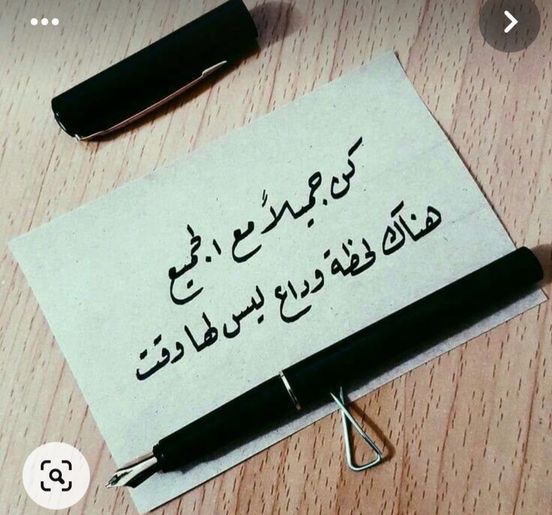 كن جميلاً مع الجميع
هناك لحظة وداع ليس لها وقت